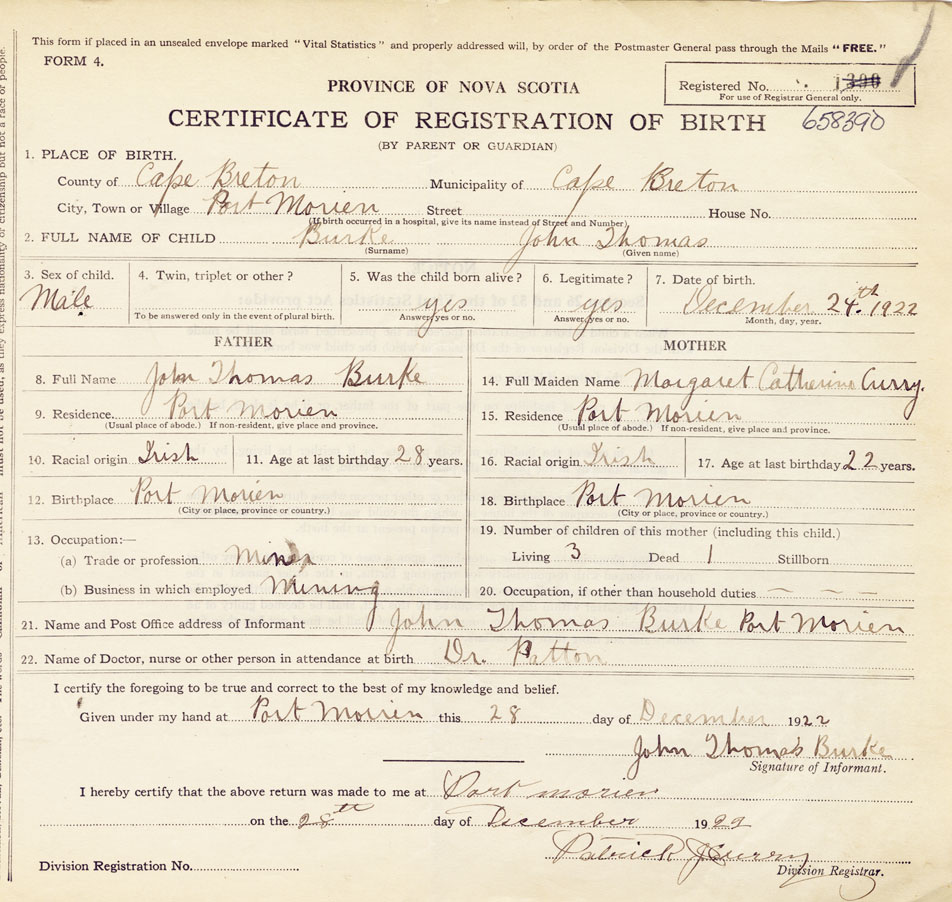 This form if placed in an unsealed envelope marked "Vital Statistics" and properly addressed will, by order of the Postmaster General pass through the Mails "FREE."
FORM 4.
Registered No. 1390
For use of Registrar General only.
PROVINCE OF NOVA SCOTIA
CERTIFICATE OF REGISTRATION OF BIRTH 658390
(BY PARENT OR GUARDIAN)
1. PLACE OF BIRTH.
County of Cape Breton Municipality of Cape Breton
City, Town or Village Port Morien Street House No.
(If birth occurred in a hospital, give its name instead of Street and Number)
2. FULL NAME OF CHILD Burke John Thomas
(Surname) (Given name)
3. Sex of child. 4. Twin, triplet or other? 5. Was the child born alive? 6. Legitimate? 7. Date of birth.
Male yes yes December 24th. 1922
To be answered only in the event of plural birth. Answer, yes or no. Answer, yes or no. Month, day, year.
FATHER MOTHER
8. Full Name John Thomas Burke 14. Full Maiden Name Margaret Catherine Curry.
9. Residence. Port Morien 15. Residence Port Morien
(Usual place of abode.) If non-resident, give place and province. (Usual place of abode.) If non-resident, give place and province.
10. Racial origin Irish 11. Age at last birthday 28 years. 16. Racial origin Irish 17. Age at last birthday 22 years.
12. Birthplace Port Morien 18. Birthplace Port Morien
(City or place, province or country.) (City or place, province or country.)
13. Occupation:— 19. Number of children of this mother (including this child.)
(a) Trade or profession Miner Living 3 Dead 1 Stillborn
(b) Business in which employed Mining 20. Occupation, if other than household duties — — —
21. Name and Post Office address of Informant John Thomas Burke Port Morien
22. Name of Doctor, nurse or other person in attendance at birth Dr. Patton
I certify the foregoing to be true and correct to the best of my knowledge and belief.
Given under my hand at Port Morien this 28 day of December 1922
John Thomas Burke
Signature of Informant.
I hereby certify that the above return was made to me at Port Morien
on the 28th day of December 1922
Patrick J Curry
Division Registration No. Division Registrar.